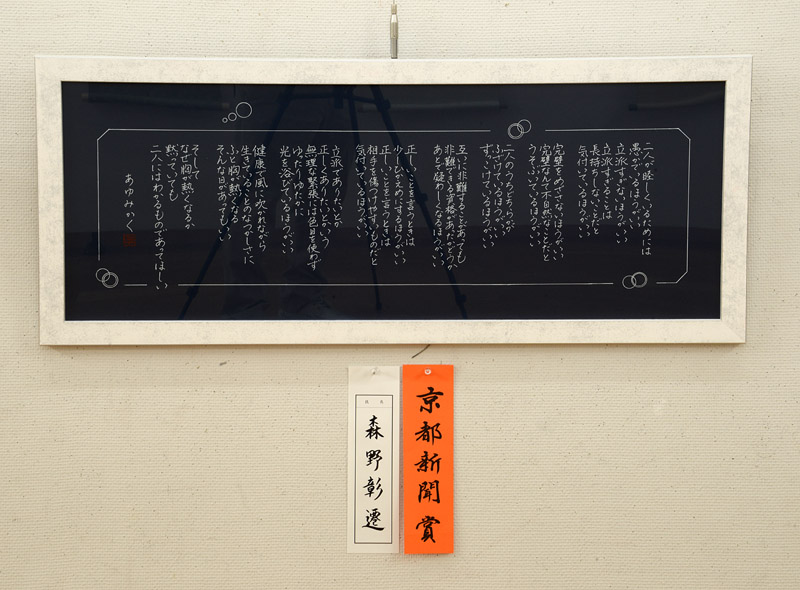 二人が睦じくいるためには
愚かでいるほうがいい
立派すぎないほうがいい
立派すぎることは
長持ちしないことだと
気付いているほうがいい
完璧をめざさないほうがいい
完璧なんて不自然なことだと
うそぶいているほうがいい
二人のうちどちらかが
ふざけているほうがいい
ずっこけているほうがいい
互いに非難することがあっても
非難できる資格が自分にあったかどうか
あとで疑わしくなるほうがいい
正しいことを言うときは
少しひかえめにするほうがいい
正しいことを言うときは
相手を傷つけやすいものだと
気付いているほうがいい
立派でありたいとか
正しくありたいとかいう
無理な緊張には色目を使わず
ゆったりゆたかに
光を浴びているほうがいい
健康で風に吹かれながら
生きていることのなつかしさに
ふと胸が熱くなる
そんな日があってもいい
そして
なぜ胸が熱くなるか
黙っていても
二人にはわかるものであってほしい
あゆみかく
氏名
森野彰遷
京都新聞賞